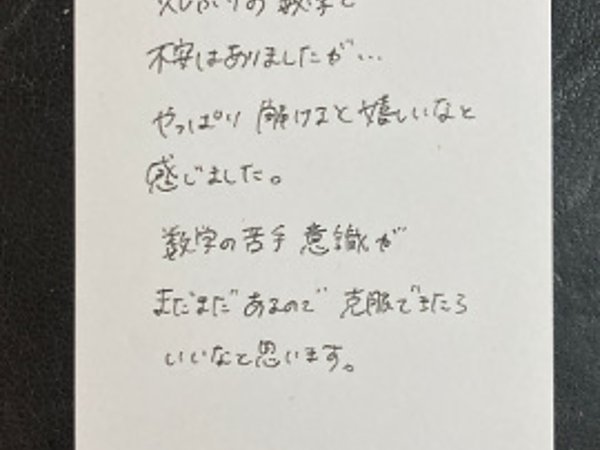 久しぶりの数学で
不安はありましたが…
やっぱり解けると嬉しいなと
感じました。
数学の苦手意識が
まだまだあるので克服できたら
いいなと思います。